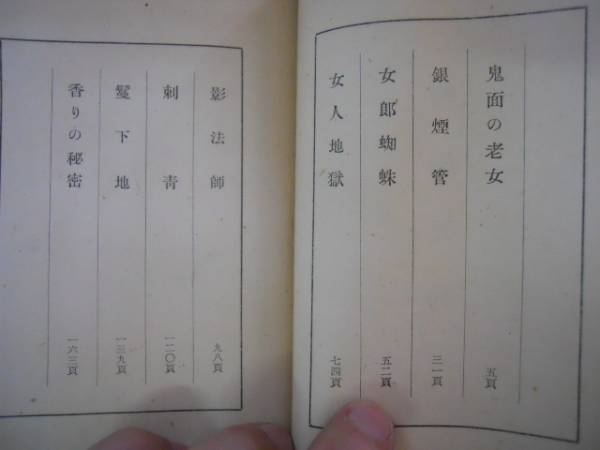 鬼面の老女 五頁
銀煙管 三一頁
女郎蜘蛛 五二頁
女人地獄 七四頁
影法師 九八頁
刺青 一二〇頁
鬘下地 一三九頁
香りの秘密 一六三頁